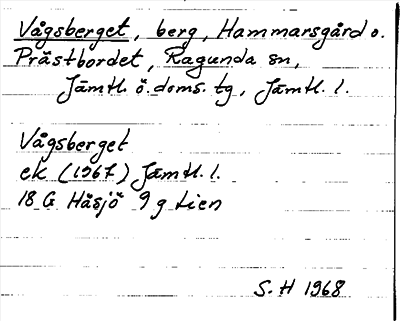 Vågsberget, berg, Hammarsgård o.
Prästbordet, Ragunda sn,
Jämtl. ö. doms. tg, Jämtl. l.
Vågsberget
ek (1967) Jämtl. l.
18 G Håsjö 9 g tien
S. H 1968